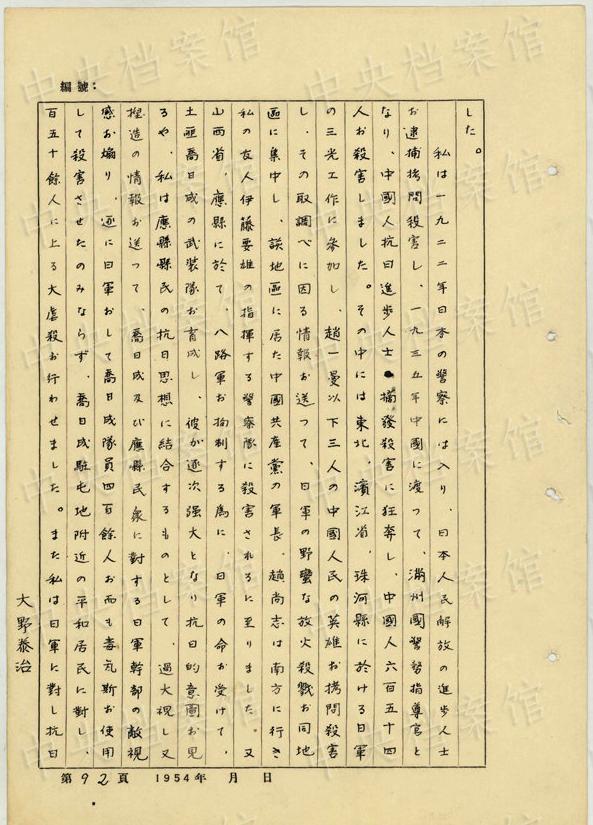 編號：
した。
私は一九二二年日本の警察には入り、日本人民解放の進歩人士
お逮捕拷問殺害し、一九三五年中國に渡つて、満州國警務指導官と
なり、中國人抗日進歩人士摘發殺害に狂奔し、中國人六百五十四
人お殺害しました。その中には東北、濱江省、珠河縣に於ける日軍
の三光工作に參加し、趙一曼以下三人の中國人民の英雄お拷問殺害
し、その取調べに因る情報お送つて、日軍の野蛮な放火殺戮お同地
區に集中し、該地區に居た中國共産黨の軍長、趙尚志は南方に行き
私の友人伊藤要雄の指揮する警察隊に殺害されるに至りました。又
山西省、應縣に於て、八路軍お拘制する為に、日軍の命お受けて、
土匪喬日成の武装隊お育成し、彼が逐次强大となり抗日的意圖お見
るや、私は應縣縣民の抗日思想に結合するものとして、過大視し又
捏造の情報お送つて、喬日成及び應縣民衆に對する日軍幹部の敵視
感お煽り、遂に日軍おして喬日成隊員四百餘人お而も毒瓦斯お使用
して殺害させたのみならず、喬日成駐屯地附近の平和居民に對し、
百五十餘人に上る大虐殺お行わせました。また私は日軍に對し抗日
大野泰治
第92頁 1954年 月 日
中央档案馆